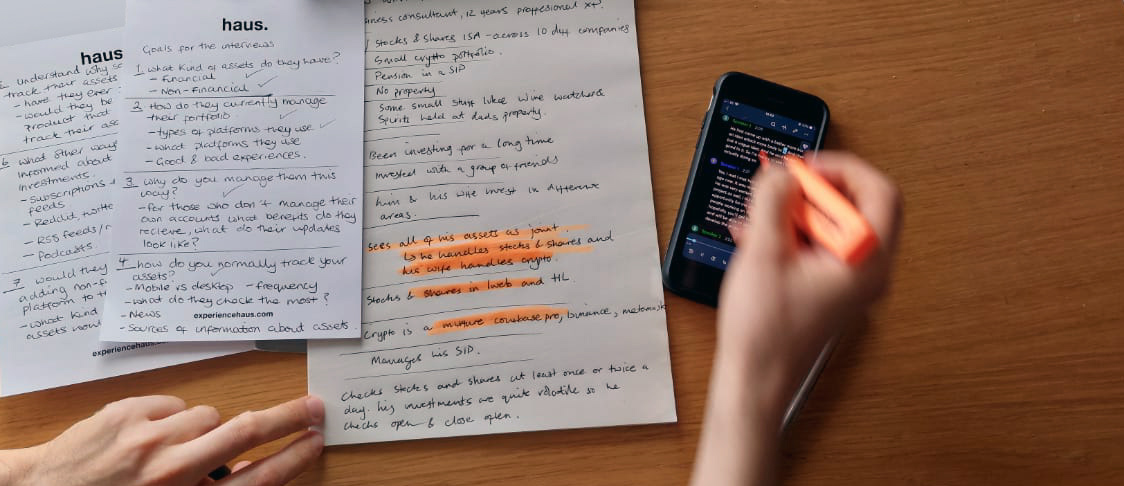 haus
understand why
track their assets
- have they ever
- would they be
product that
track their
6 what other ways
informed about
investments.
- subscriptions
feeds
- Reddit,
- RSS feeds/
- Podcasts.
7 would they
adding non-
platform to
- what kind
assets
experiencehaus.
haus.
Goals for the interviews
1 what kind of assets do they have?
- Financial
- Non-Financial
2 How do they currently manage
their portfolio.
- types of platforms they use
- what platforms they use
- Good & bad experiences.
3 why do you manage them this
way?
- for those who don't manage their
own accounts what benefits do they
recieve, what do their updates
look like?
4 how do you normally track your
assets?
- Mobile vs desktop - frequency
- what do they check the most?
- News
- Sources of information about assets.
experiencehaus.com
consultant, 12 years proffesional
Stocks & shares ISA - across 10 diff companies
Small crypto portfolio.
Pension in a SIP
No property
Some small stuff like wine watches &
Spirits held at dads property.
Been investing for a long time
Invested with a group of friends
him & his wife invest in different
areas.
sees all of his assets as joint.
↳ he handles stocks & shares and
his wife handles crypto.
Stocks & shares in Iweb and HL
Crypto is a mixture coinbase pro, binance, metamask
Manages his SIP.
Checks stocks and shares at least once or twice a
day. his investments are quite volatile so he
checks open & close often.